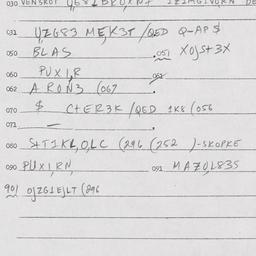 031 UZG83 MEK3T /QED Q-AP$
050 BLAS 051 XOJST3X
060 PUXI,R 061
062 ARON3 (067
070 $ CTER3K /QED 1K8 (056
071 —
080 STIKL,O,LC (296 (252 )-SKOPKE
090 PUXI,RN, 091 MAZO,L83S
901 OJZG1EJLT (296